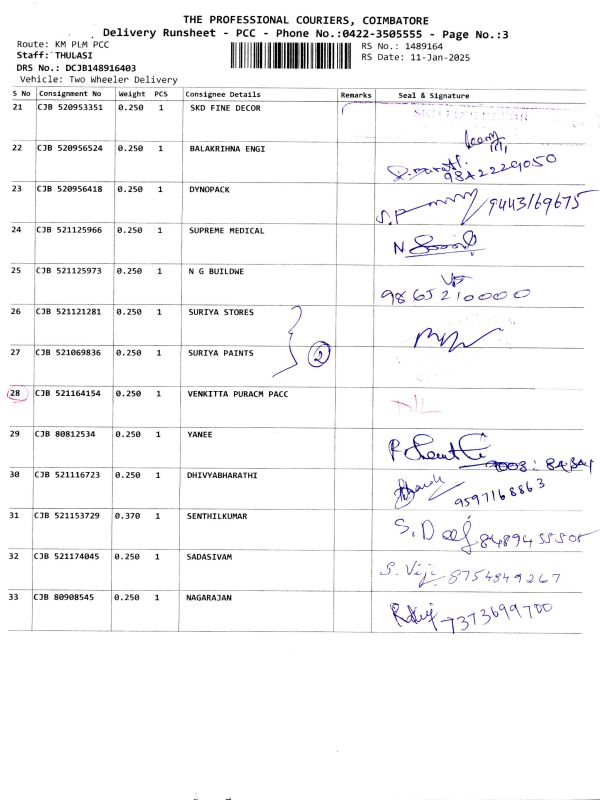 THE PROFESSIONAL COURIERS, COIMBATORE
Delivery Runsheet - PCC - Phone No.:0422-3505555 - Page No.:3
Route: KM PLM PCC RS No.: 1489164
Staff: THULASI RS Date: 11-Jan-2025
DRS No.: DCJB148916403
Vehicle: Two Wheeler Delivery
S No Consignment No Weight PCS Consignee Details Remarks Seal & Signature
21 CJB 520953351 0.250 1 SKD FINE DECOR
22 CJB 520956524 0.250 1 BALAKRIHNA ENGI
9842229050
23 CJB 520956418 0.250 1 DYNOPACK
9443169675
24 CJB 521125966 0.250 1 SUPREME MEDICAL
25 CJB 521125973 0.250 1 N G BUILDWE
9865210000
26 CJB 521121281 0.250 1 SURIYA STORES
2
27 CJB 521069836 0.250 1 SURIYA PAINTS
28 CJB 521164154 0.250 1 VENKITTA PURACM PACC
29 CJB 80812534 0.250 1 YANEE
30 CJB 521116723 0.250 1 DHIVYABHARATHI
9597168863
31 CJB 521153729 0.370 1 SENTHILKUMAR
32 CJB 521174045 0.250 1 SADASIVAM
S. Viji 8754849267
33 CJB 80908545 0.250 1 NAGARAJAN
7373699700